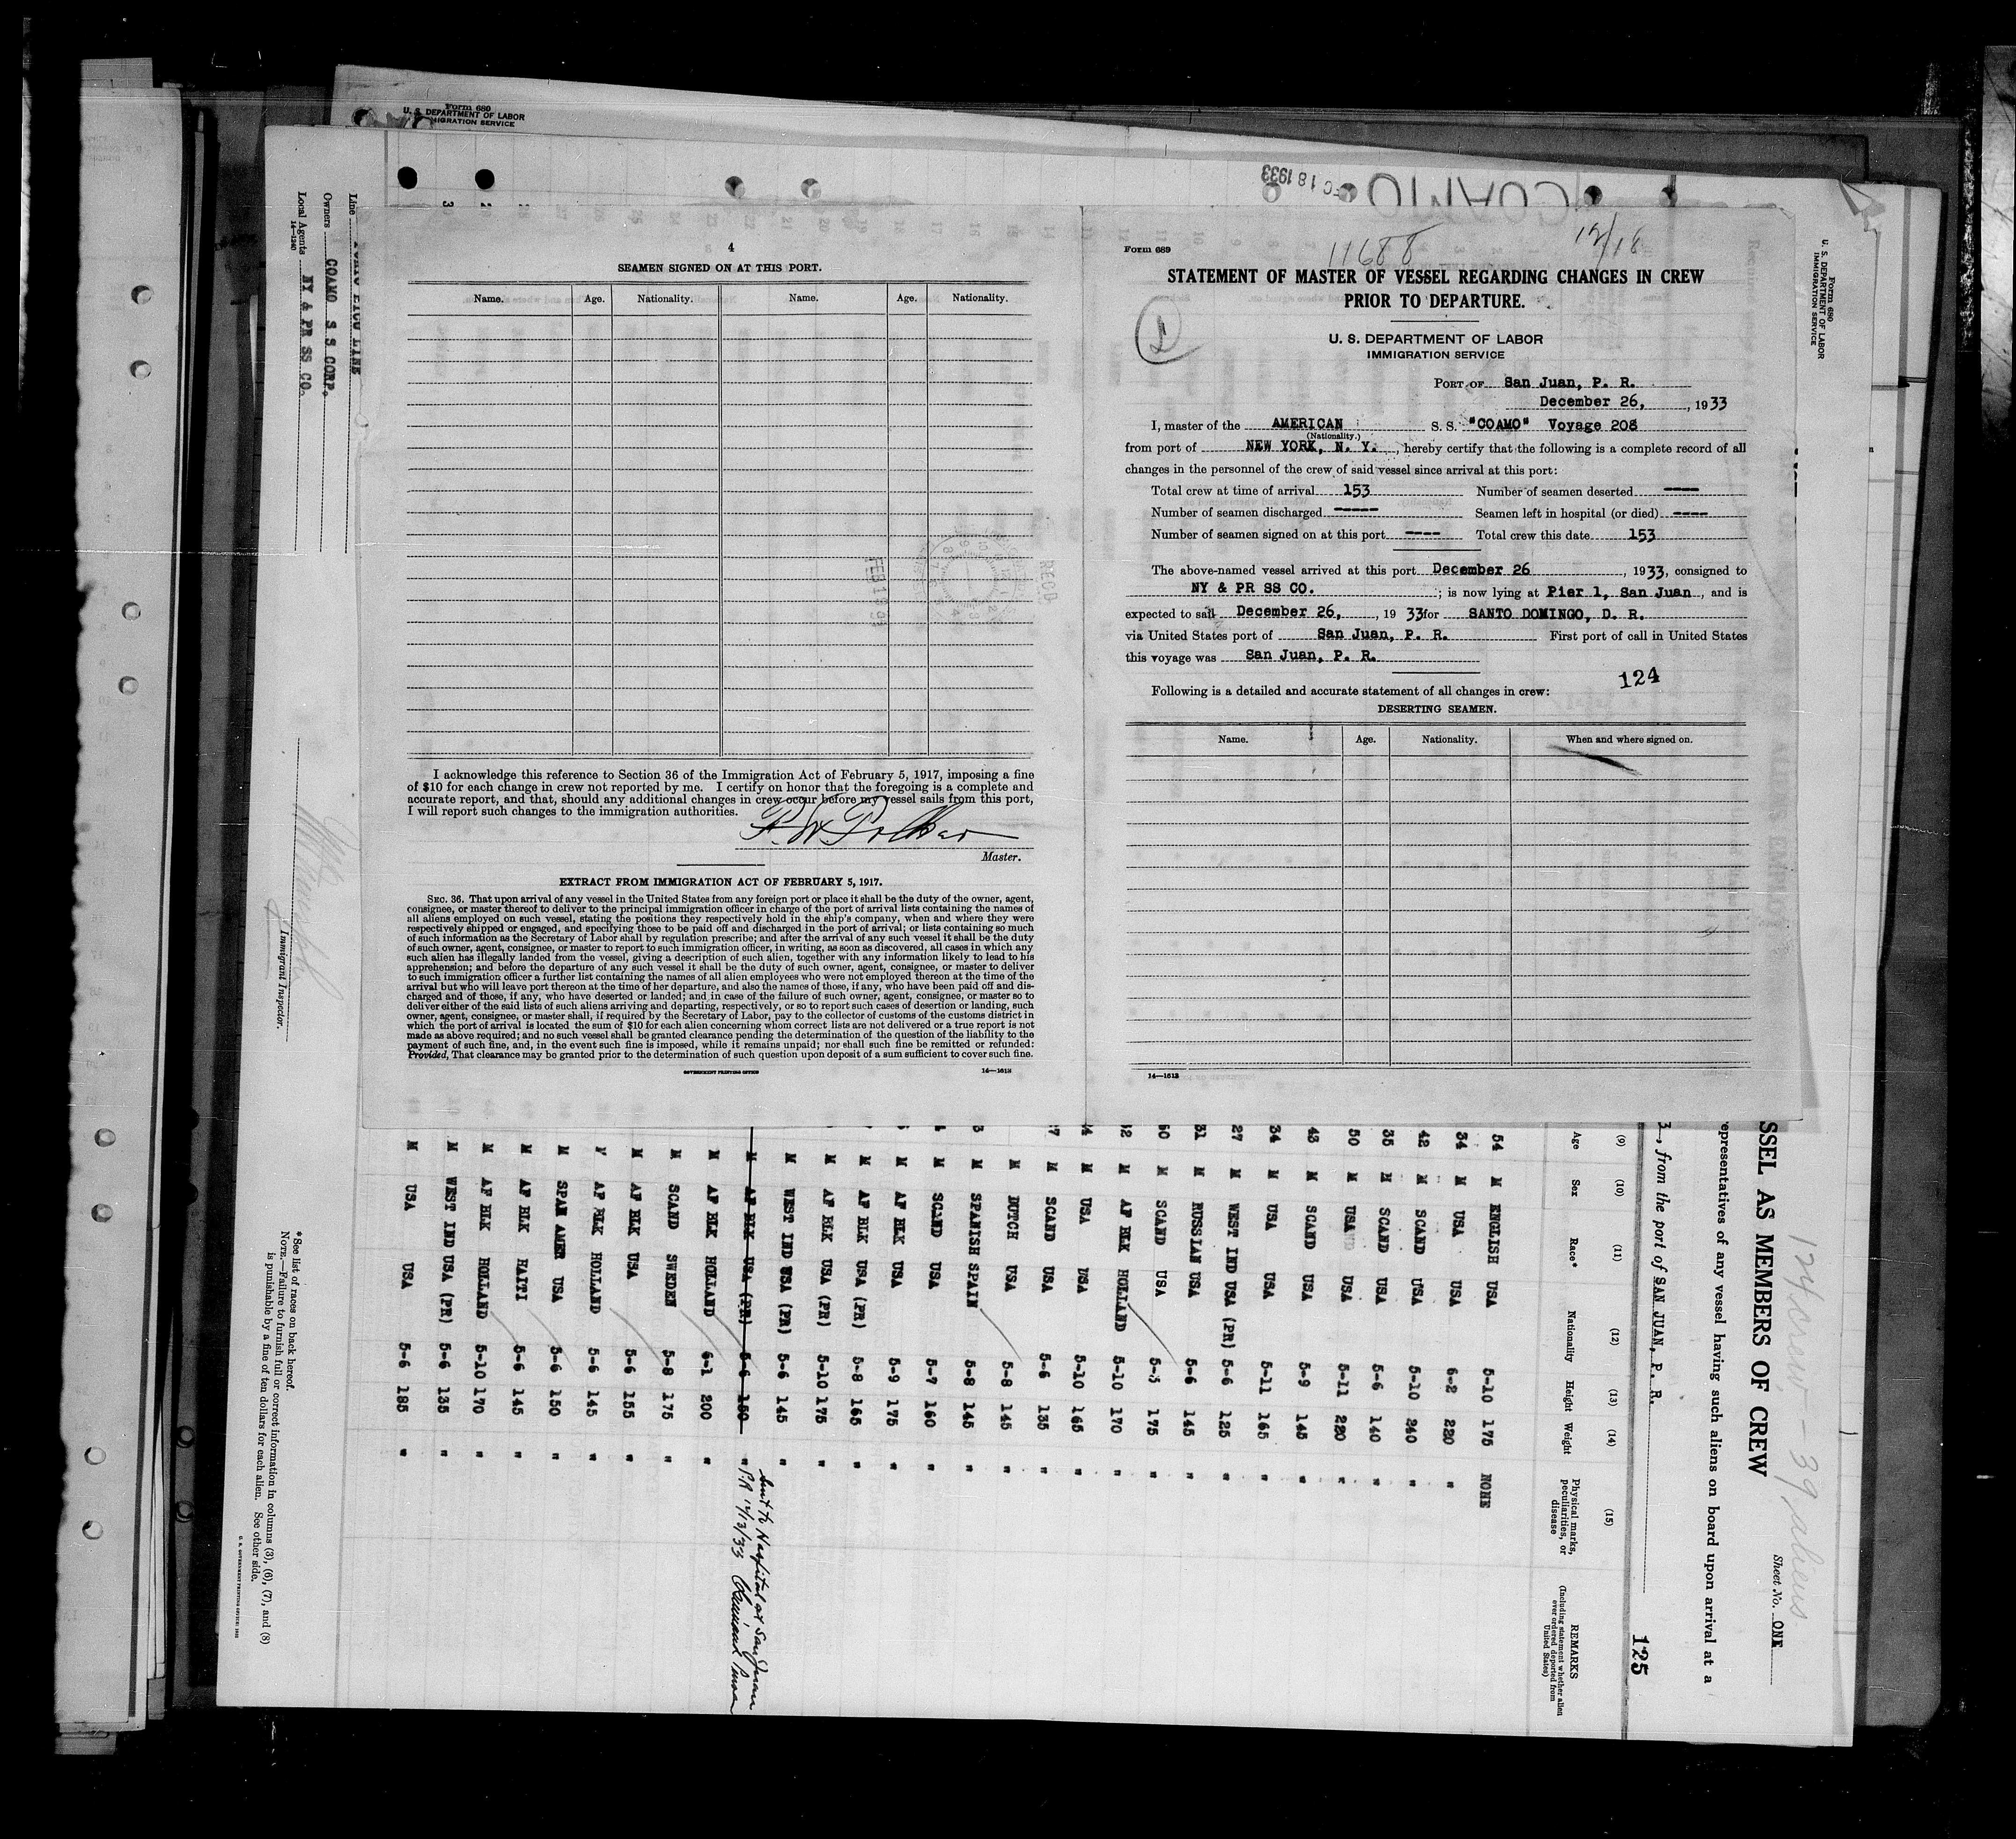 Form 680
U. S. DEPARTMENT OF LABOR
IMMIGRATION SERVICE
DEC 18 1933
COAMO
4
SEAMEN SIGNED ON AT THIS PORT.
Name. Age. Nationality. Name. Age. Nationality.
I acknowledge this reference to Section 36 of the Immigration Act of February 5, 1917, imposing a fine
of $10 for each change in crew not reported by me. I certify on honor that the foregoing is a complete and
accurate report, and that, should any additional changes in crew occur before my vessel sails from this port,
I will report such changes to the immigration authorities.
Master.
EXTRACT FROM IMMIGRATION ACT OF FEBRUARY 5, 1917.
SEC. 36. That upon arrival of any vessel in the United States from any foreign port or place it shall be the duty of the owner, agent,
consignee, or master thereof to deliver to the principal immigration officer in charge of the port of arrival lists containing the names of
all aliens employed on such vessel, stating the positions they respectively hold in the ship's company, when and where they were
respectively shipped or engaged, and specifying those to be paid off and discharged in the port of arrival; or lists containing so much
of such information as the Secretary of Labor shall by regulation prescribe; and after the arrival of any such vessel it shall be the duty
of such owner, agent, consignee, or master to report to such immigration officer, in writing, as soon as discovered, all cases in which any
such alien has illegally landed from the vessel, giving a description of such alien, together with any information likely to lead to his
apprehension; and before the departure of any such vessel it shall be the duty of such owner, agent, consignee, or master to deliver
to such immigration officer a further list containing the names of all alien employees who were not employed thereon at the time of the
arrival but who will leave port thereon at the time of her departure, and also the names of those, if any, who have been paid off and dis-
charged and of those, if any, who have deserted or landed; and in case of the failure of such owner, agent, consignee, or master so to
deliver either of the said lists of such aliens arriving and departing, respectively, or so to report such cases of desertion or landing, such
owner, agent, consignee, or master shall, if required by the Secretary of Labor, pay to the collector of customs of the customs district in
which the port of arrival is located the sum of $10 for each alien concerning whom correct lists are not delivered or a true report is not
made as above required; and no such vessel shall be granted clearance pending the determination of the question of the liability to the
payment of such fine, and, in the event such fine is imposed, while it remains unpaid; nor shall such fine be remitted or refunded:
Provided, That clearance may be granted prior to the determination of such question upon deposit of a sum sufficient to cover such fine.
GOVERNMENT PRINTING OFFICE 14—1613
Form 689
11688
12/18
STATEMENT OF MASTER OF VESSEL REGARDING CHANGES IN CREW
PRIOR TO DEPARTURE.
U. S. DEPARTMENT OF LABOR
IMMIGRATION SERVICE
PORT OF San Juan, P. R.
December 26, , 1933
I, master of the AMERICAN S. S. "COAMO" Voyage 208
(Nationality.)
from port of NEW YORK, N. Y. , hereby certify that the following is a complete record of all
changes in the personnel of the crew of said vessel since arrival at this port:
Total crew at time of arrival 153 Number of seamen deserted ----
Number of seamen discharged ----- Seamen left in hospital (or died) ----
Number of seamen signed on at this port ---- Total crew this date 153
The above-named vessel arrived at this port December 26 , 1933, consigned to
NY & PR SS CO. ; is now lying at Pier 1, San Juan , and is
expected to sail December 26, , 19 33 for SANTO DOMINGO, D. R.
via United States port of San Juan, P. R. First port of call in United States
this voyage was San Juan, P. R.
124
Following is a detailed and accurate statement of all changes in crew:
DESERTING SEAMEN.
Name. Age. Nationality. When and where signed on.
14—1613
Form 680
U. S. DEPARTMENT OF LABOR
IMMIGRATION SERVICE
Line
Owners COAMO S S CORP.
Local Agents NY & PR SS CO.
14—1240
Immigrant Inspector.
124 crew - 39 aliens
Sheet No. ONE
SSEL AS MEMBERS OF CREW
epresentatives of any vessel having such aliens on board upon arrival at a
3 , from the port of SAN JUAN, P. R.
125
(9) (10) (11) (12) (13) (14) (15)
Age Sex Race* Nationality Height Weight Physical marks, peculiarities, or disease
REMARKS
(Including statement whether alien
ever ordered deported from
United States)
54 M ENGLISH USA 5-10 175 NONE
34 M USA USA 6-2 220 "
42 M SCAND USA 5-10 240 "
35 M SCAND USA 5-6 140 "
50 M USA USA 5-11 220 "
43 M SCAND USA 5-9 145 "
34 M USA USA 5-11 165 "
27 M WEST IND USA (PR) 5-6 125 "
31 M RUSSIAN USA 5-6 145 "
50 M SCAND USA 5-3 175 "
32 M AF BLK HOLLAND 5-10 170 "
4 M USA USA 5-10 165 "
7 M SCAND USA 5-6 135 "
M DUTCH USA 5-8 145 "
3 M SPANISH SPAIN 5-8 145 "
M SCAND USA 5-7 160 "
M AF BLK USA 5-9 175 "
M AF BLK USA (PR) 5-8 165 "
M AF BLK USA (PR) 5-10 175 "
M WEST IND USA (PR) 5-6 145 "
M AF BLK USA (PR) 5-6 150 " Sent to Hospital at San Juan
P.R 12/13/33
M AF BLK HOLLAND 6-1 200 "
M SCAND SWEDEN 5-8 175 "
M AF BLK USA 5-6 155 "
AF BLK HOLLAND 5-6 145 "
M SPAN AMER USA 5-6 150 "
M AF BLK HAITI 5-6 145 "
M AF BLK HOLLAND 5-10 170 "
M WEST IND USA (PR) 5-6 135 "
M USA USA 5-6 185 "
* See list of races on back hereof.
NOTE.—Failure to furnish full or correct information in columns (3), (6), (7), and (8)
is punishable by a fine of ten dollars for each alien. See other side.